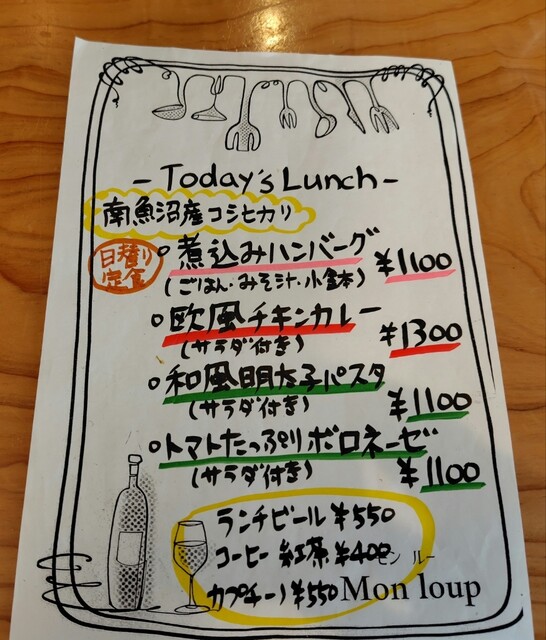 -Today's Lunch-
南魚沼産コシヒカリ
日替り
定食
○煮込みハンバーグ
(ごはん・みそ汁・小鉢)
¥1100
○欧風チキンカレー
(サラダ付き)
¥1300
○和風明太子パスタ
(サラダ付き)
¥1100
○トマトたっぷりボロネーゼ
(サラダ付き)
¥1100
ランチビール ¥550
コーヒー 紅茶 ¥400
モン ルー
カプチーノ ¥550 Mon loup